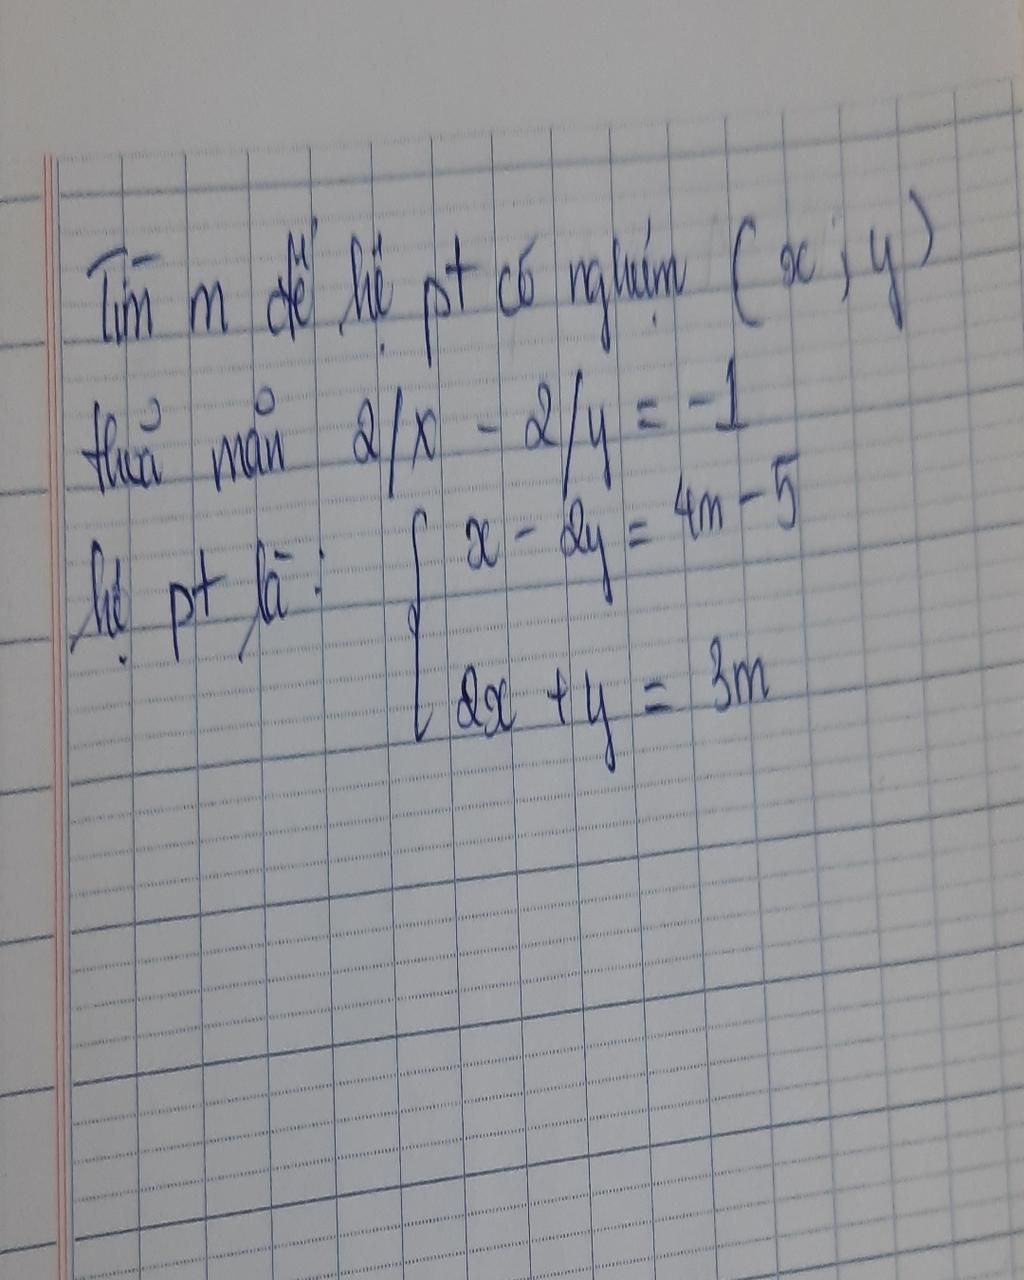 Tìm m để hệ pt có nghiệm (x; y)
thoả mãn 2/x - 2/y = -1
hệ pt là: { x - 2y = 4m - 5
2x + y = 3m